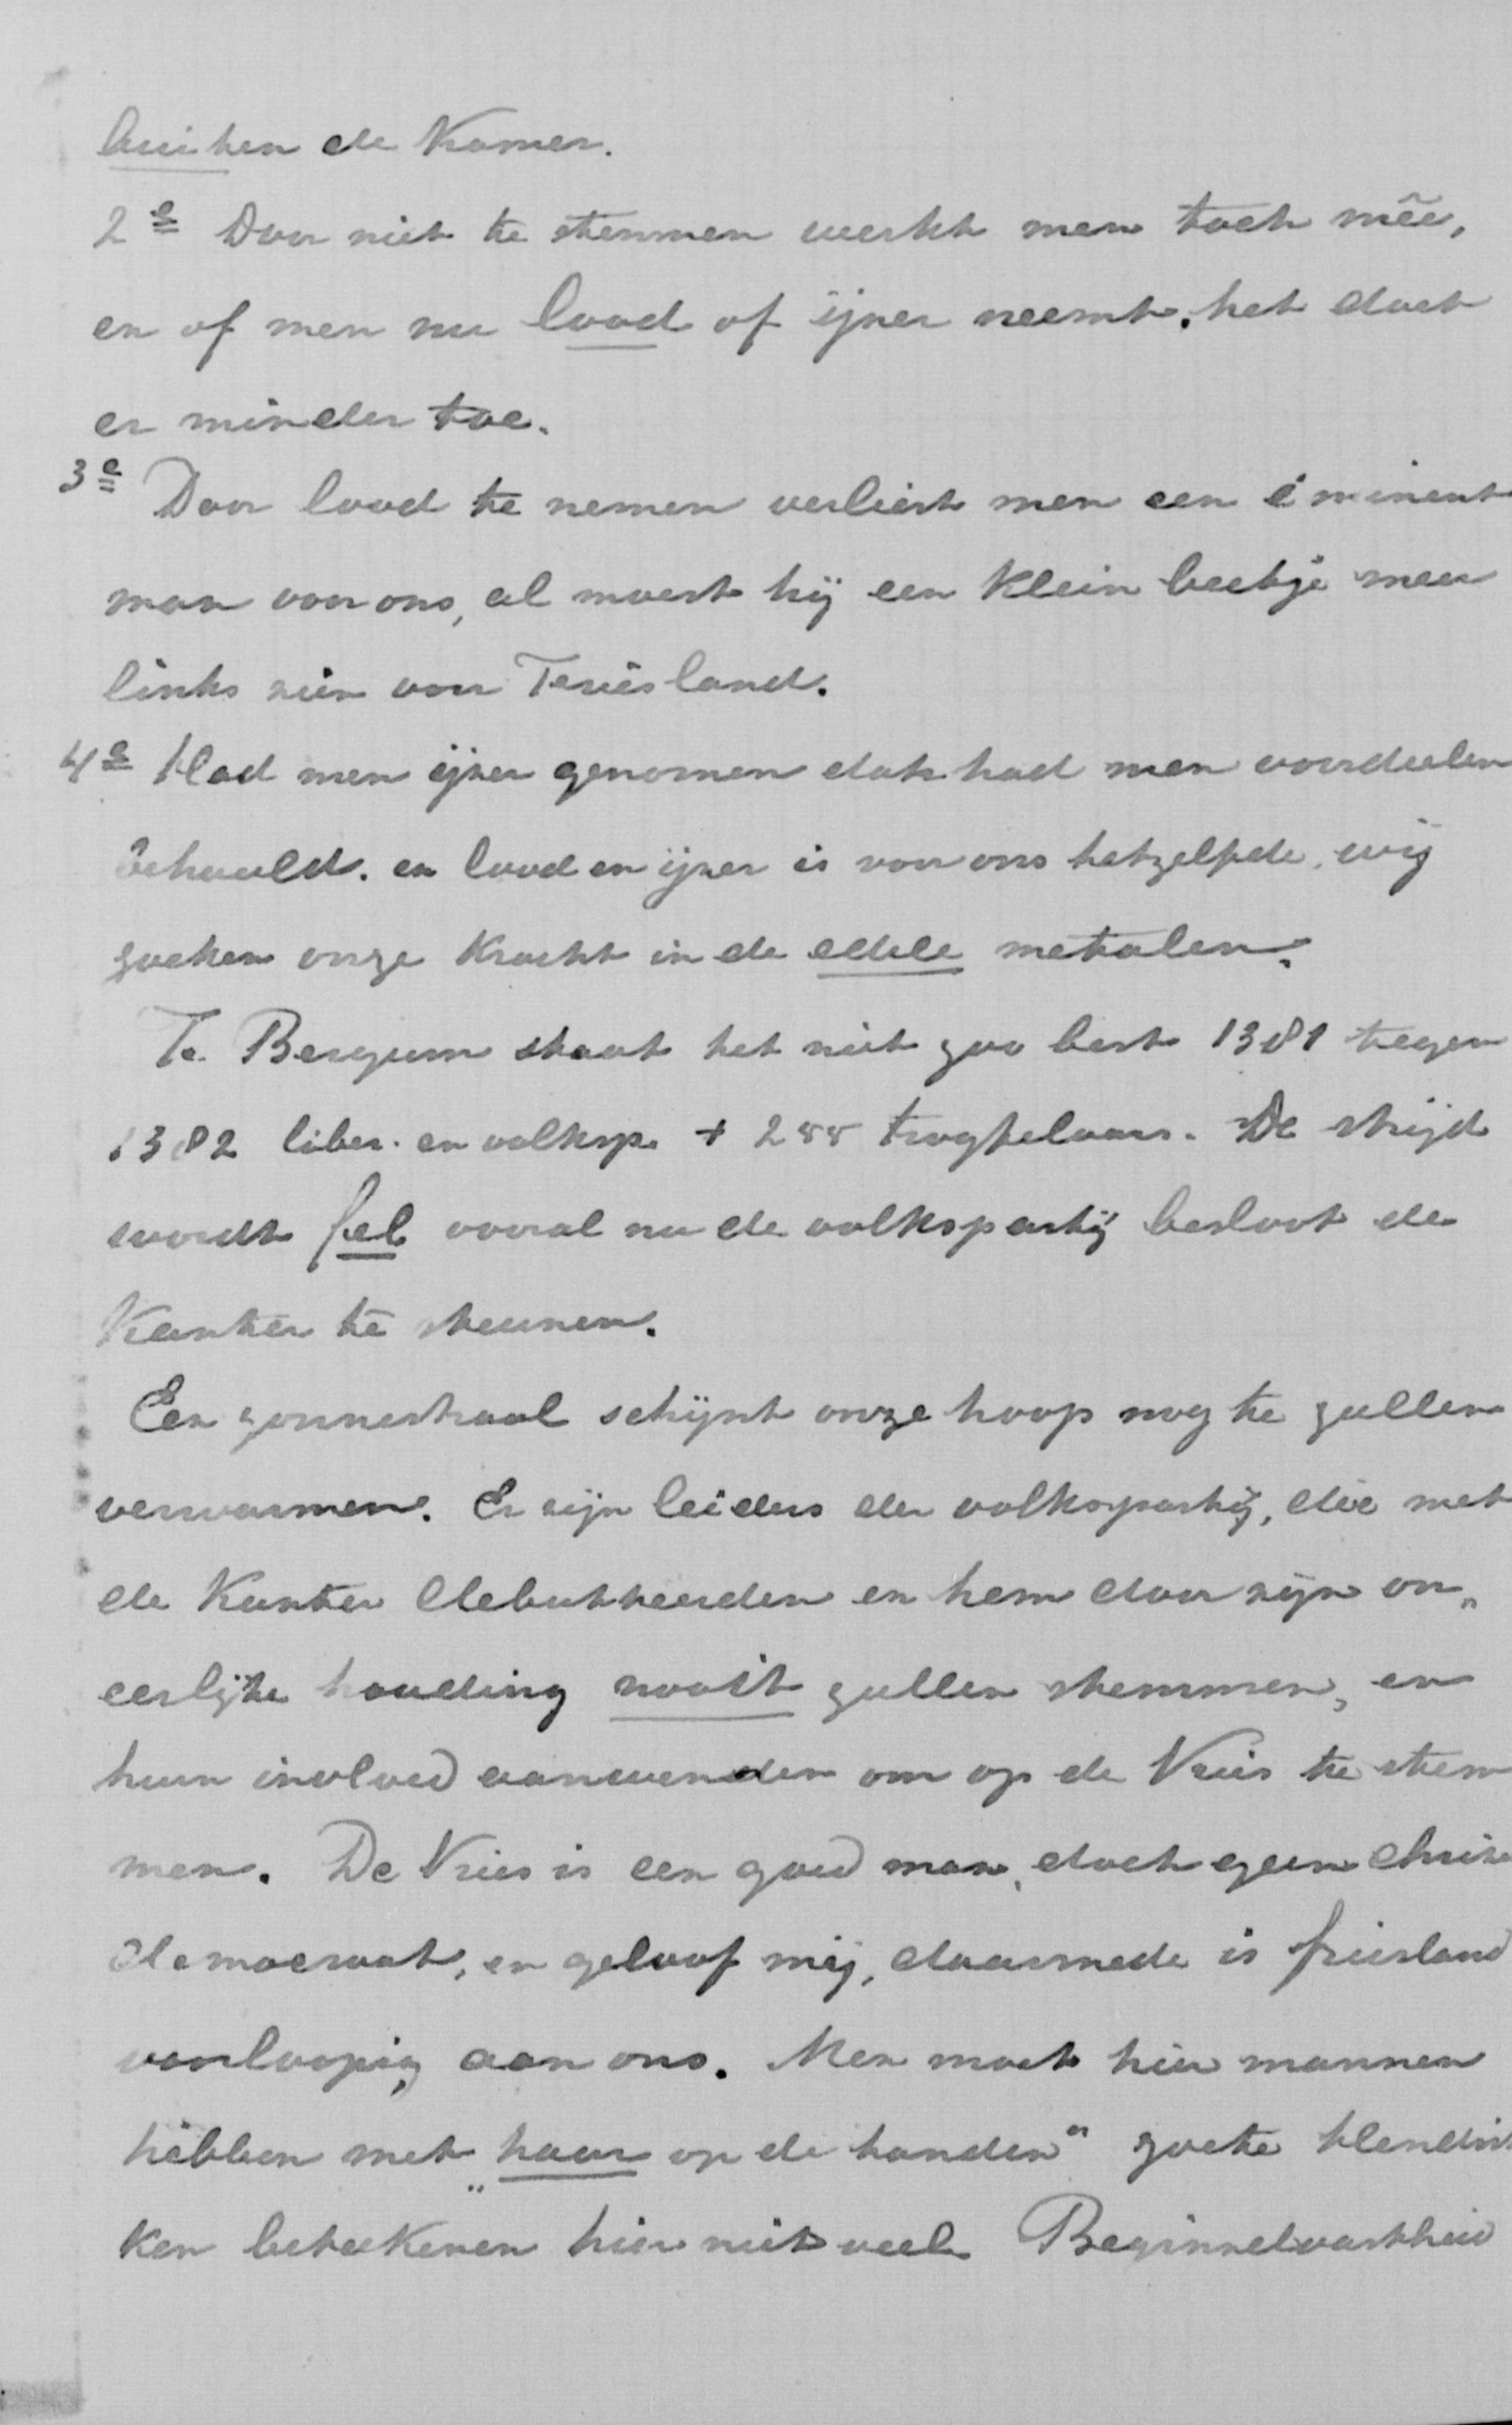 buiten de Kamer.
2e Door niet te stemmen werkt men toch mêe,
en of men nu lood of ijzer neemt, het doet
er minder toe.
3e Door lood te nemen verliest men een éminent
man voor ons, al moest hij een klein beetje meer
links zien voor Friesland.
4e Had men ijzer genomen dat had men voordeelen
behaald. en lood en ijzer is voor ons hetzelfde, wij
zoeken onze kracht in de edele metalen.
Te Bergum staat het niet zoo best 1381 tegen
1382 liber. en volksp. + 255 troefelaars. De strijd
wordt fel vooral nu de volkspartij besloot de
Kanter te steunen.
Een zonnestraal schijnt onze hoop nog te zullen
verwarmen. Er zijn leiders der volkspartij, die met
de Kanter debatteerden en hem door zijn on„
eerlijke houding nooit zullen stemmen, en
hun invloed aanwenden om op de Vries te stem
men. De Vries is een goed man, doch geen Chris
democraat, en geloof mij, daarmede is friesland
voorloopig aan ons. Men moet hier mannen
hebben met „haar op de handen" zoete
ken beteekenen hier niet veel Beginselvastheid